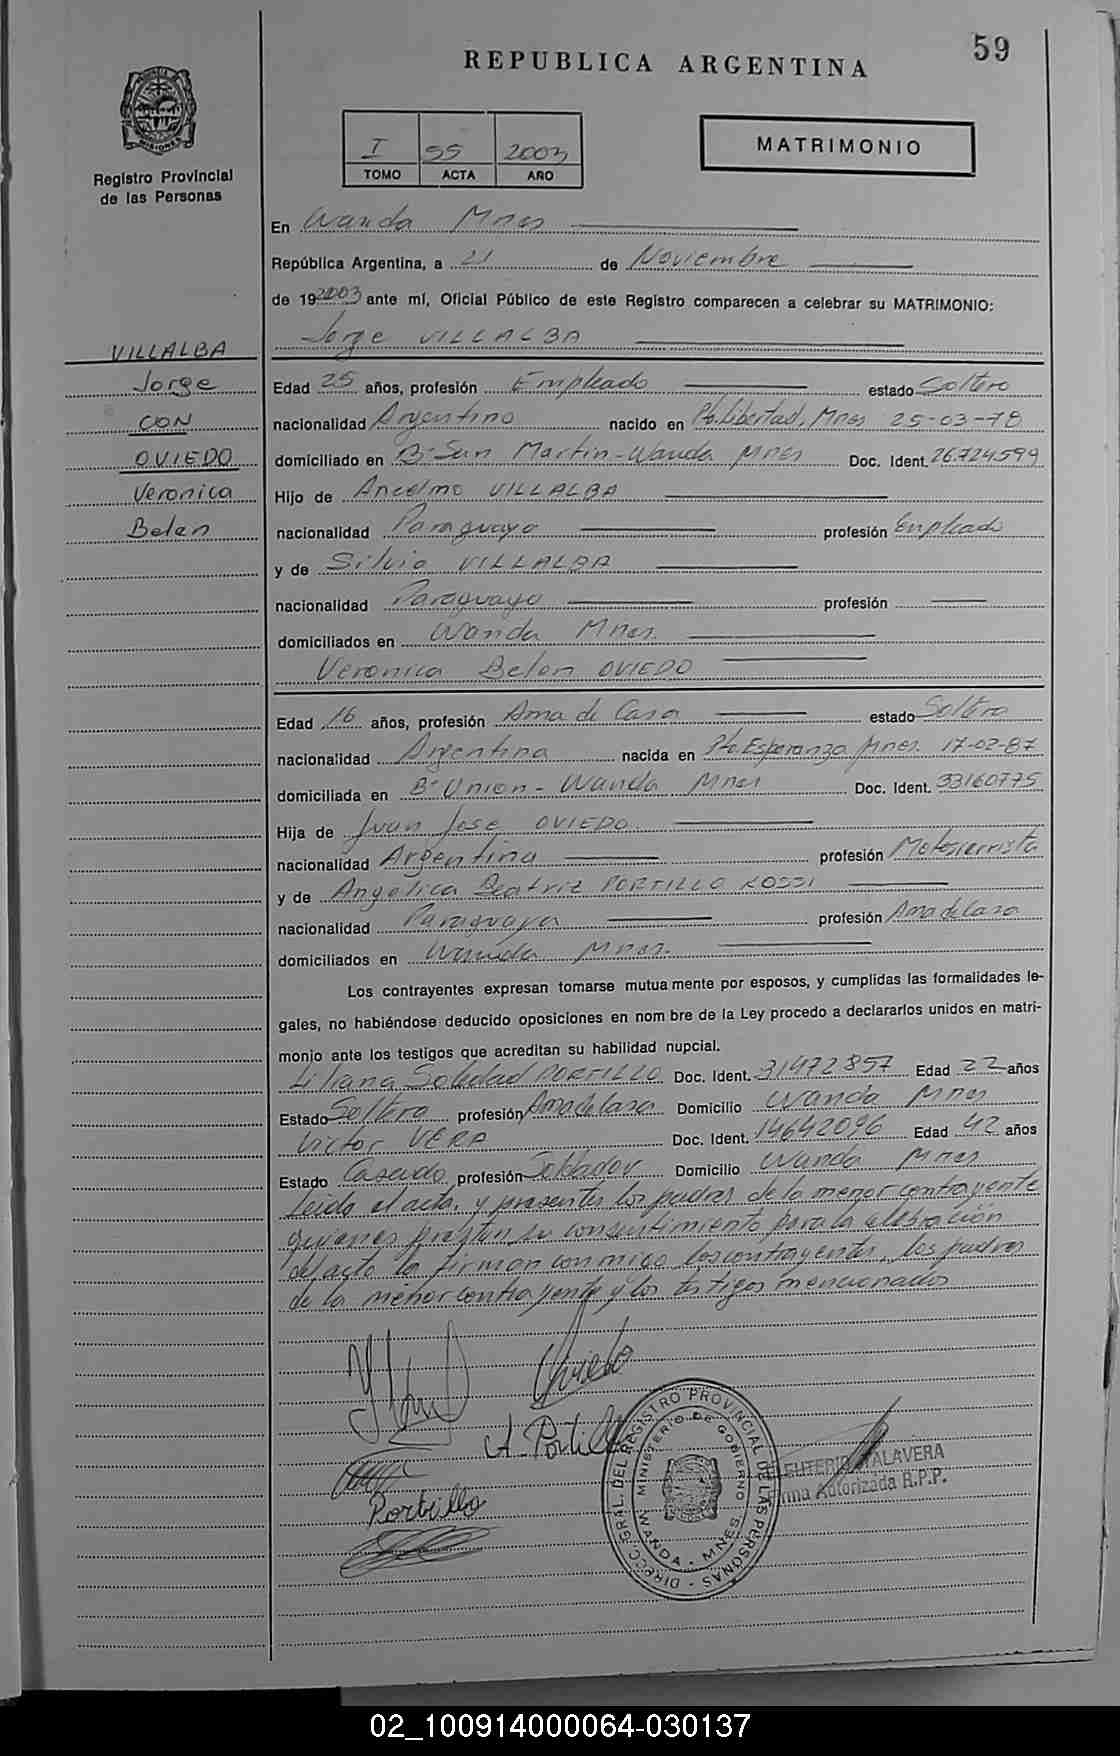 59
REPUBLICA ARGENTINA
PROVINCIA DE MISIONES
Registro Provincial
de las Personas
I 55 2003
TOMO ACTA AÑO
MATRIMONIO
En Wanda Mnes
República Argentina, a 21 de Noviembre
de 192003 ante mí, Oficial Público de este Registro comparecen a celebrar su MATRIMONIO:
Jorge VILLALBA
VILLALBA
Jorge
CON
OVIEDO
Veronica
Belen
Edad 25 años, profesión Empleado estado Soltero
nacionalidad Argentino nacido en Pto. Libertad, Mnes 25-03-78
domiciliado en Bº San Martin - Wanda Mnes Doc. Ident. 26.724.599
Hijo de Ancelmo VILLALBA
nacionalidad Paraguayo profesión Empleado
y de Silvia VILLALBA
nacionalidad Paraguaya profesión
domiciliados en Wanda Mnes.
Veronica Belen OVIEDO
Edad 16 años, profesión Ama de Casa estado Soltera
nacionalidad Argentina nacida en Pto. Esperanza Mnes. 17-02-87
domiciliada en Bº Union - Wanda Mnes Doc. Ident. 33160775
Hija de Juan Jose OVIEDO
nacionalidad Argentina profesión Motosierrista
y de Angelica Beatriz PORTILLO ROSSI
nacionalidad Paraguaya profesión Ama de Casa
domiciliados en Wanda Mnes.
Los contrayentes expresan tomarse mutua mente por esposos, y cumplidas las formalidades le-
gales, no habiéndose deducido oposiciones en nom bre de la Ley procedo a declararlos unidos en matri-
monio ante los testigos que acreditan su habilidad nupcial.
Liliana Soledad PORTILLO Doc. Ident. 31472857 Edad 22 años
Estado Soltera profesión Ama de Casa Domicilio Wanda Mnes
Victor VERA Doc. Ident. 14642096 Edad 42 años
Estado Casado profesión Soldador Domicilio Wanda Mnes
Leida el acta, y presentes los padres de la menor contrayente
quienes prestan su consentimiento para la celebración
del acto la firman conmigo los contrayentes, los padres
de la menor contrayente y los testigos mencionados
Oviedo
A. Portillo
Portillo
DIRECC. GRAL. DEL REGISTRO PROVINCIAL DE LAS PERSONAS
MINISTERIO DE GOBIERNO
WANDA - MNES.
ELEUTERIO TALAVERA
Firma Autorizada R.P.P.
02_100914000064-030137